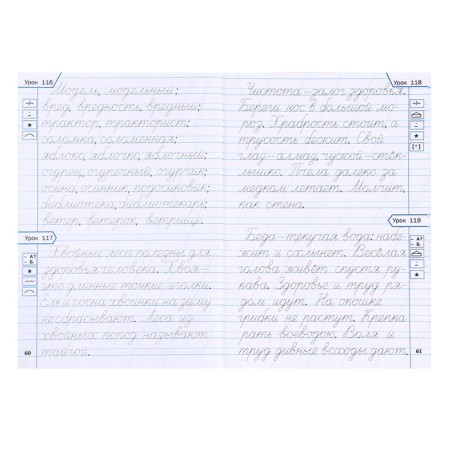 Урок 116
Модель, модельный;
вред, вредность, вредный;
трактор, тракторист;
соломка, соломенная;
яблоко, яблочко, яблочный;
огурец, огуречный, огурчик;
осина, осинник, подосиновик;
библиотека, библиотекарь;
ветер, ветерок, ветрище.
Урок 117
Хвойные леса полезны для
здоровья человека. Хвоя –
это длинные тонкие иголки.
Ель и сосна хвоинки на зиму
не сбрасывают. Леса из
хвойных пород называют
тайгой.
60
Урок 118
Чистота – залог здоровья.
Береги нос в большой мо-
роз. Храбрость стоит, а
трусость бежит. Свой
глаз – алмаз, чужой – стёк-
лышко. Пчела далеко за
мёдком летает. Молчит,
как стена.
Урок 119
Беда – текучая вода: набе-
жит и схлынет. Весёлая
голова живёт спустя ру-
кава. Здоровье и труд ря-
дом идут. На окошке
грибки не растут. Крепка
рать воеводою. Воля и
труд дивные всходы дают.
61